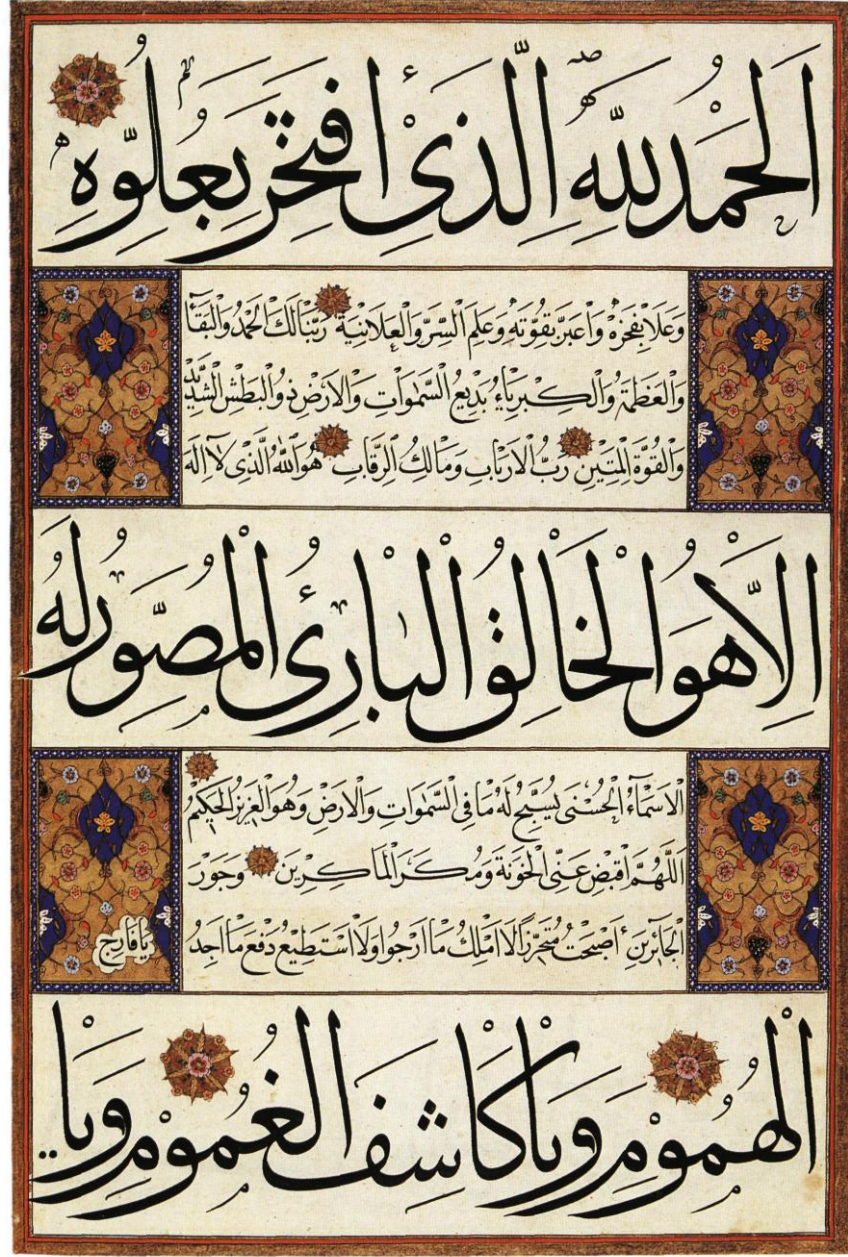 اَلْحَمْدُ لِلّٰهِ الَّذِىْٓ افْتَخَرَ بِعُلُوِّهٖ
وَعَلَا بِفَخْرِهٖ وَاعْبَرَّ بِقُوَّتِهٖ وَعَلِمَ السِّرَّ وَالْعَلَانِيَةَ رَبَّنَا لَكَ الْحَمْدُ وَالْبَقَآءُ
وَالْعَظَمَةُ وَالْكِبْرِيَآءُ بَدِيعُ السَّمٰوَاتِ وَالْاَرْضِ ذُو الْبَطْشِ الشَّدِيْدِ
وَالْقُوَّةِ الْمَتِيْنِ رَبُّ الْاَرْبَابِ وَمَالِكُ الرِّقَابِ هُوَ اللّٰهُ الَّذِى لَآ اِلٰهَ
اِلَّا هُوَ الْخَالِقُ الْبَارِئُ الْمُصَوِّرُ لَهُ
الْاَسْمَآءُ الْحُسْنٰى يُسَبِّحُ لَهُ مَا فِى السَّمٰوَاتِ وَالْاَرْضِ وَهُوَ الْعَزِيْزُ الْحَكِيْمُ
اَللّٰهُمَّ اقْبِضْ عَنِّى الْخَوَنَةَ وَمَكْرَ الْمَاكِرِيْنَ وَجَوْرَ
الْجَآئِرِيْنَ اَصْبَحْتُ لَا اَمْلِكُ مَا اَرْجُوا وَلَا اَسْتَطِيْعُ دَفْعَ مَا اَجِدُ
يَا فَارِجَ
الْهُمُوْمِ وَيَا كَاشِفَ الْغُمُوْمِ وَيَا